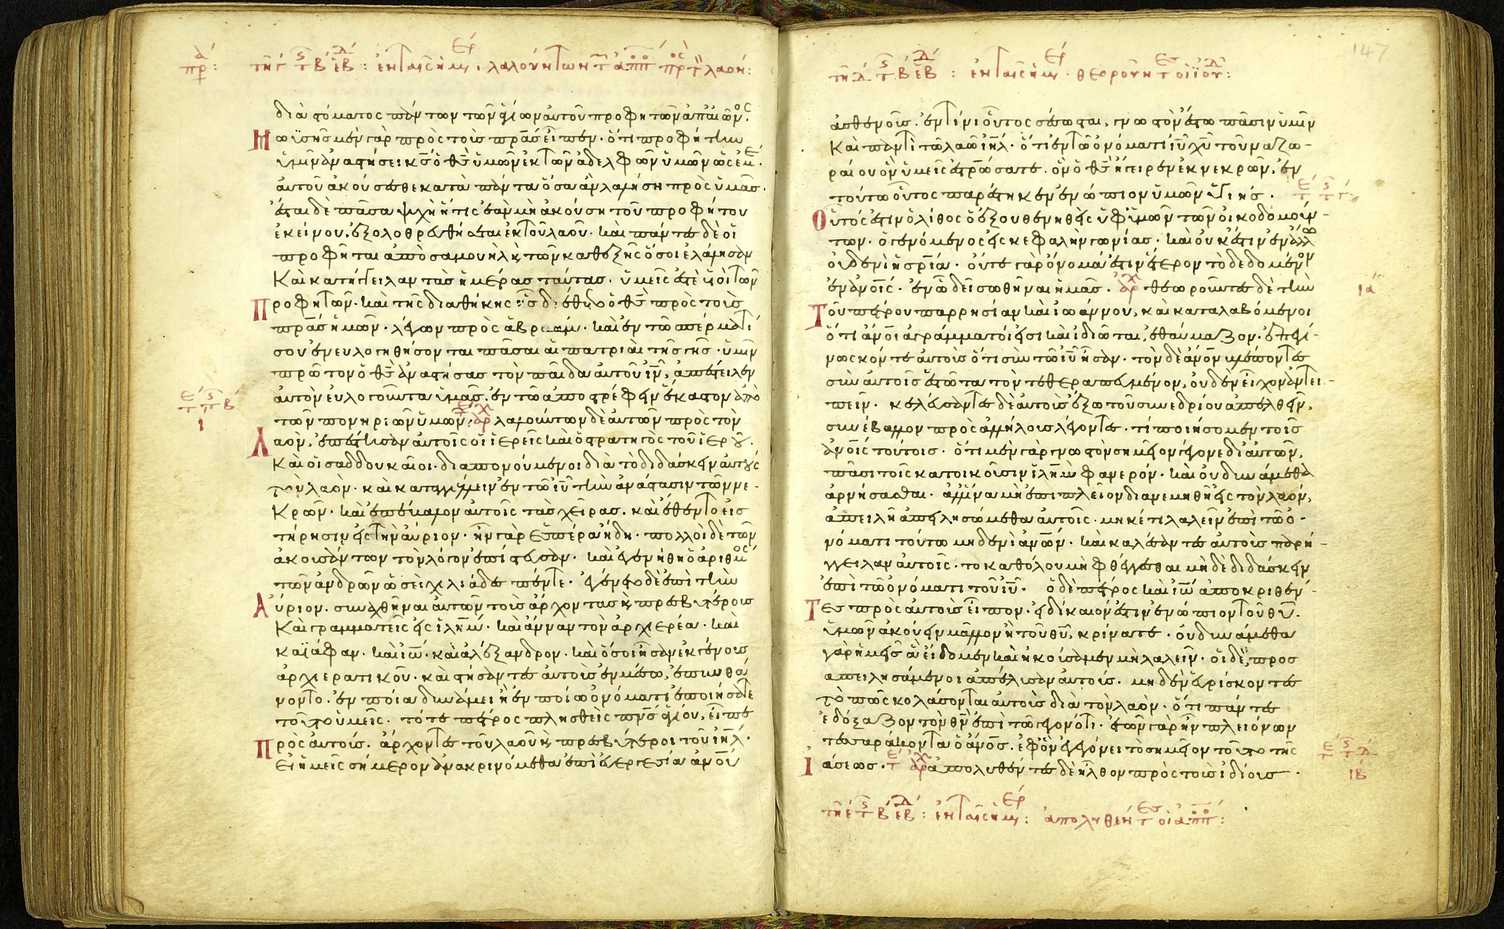 διὰ στόματος πάντων τῶν ἁγίων αὐτοῦ προφητῶν ἀπ' αἰῶνος.
Μωϋσῆς μὲν γὰρ πρὸς τοὺς πρας εἶπεν. ὅτι προφήτην
ὑμῖν ἀναστήσει κς ὁ θς ὑμῶν ἐκ τῶν ἀδελφῶν ὑμῶν ὡς ἐμέ.
αὐτοῦ ἀκούσεσθε κατὰ πάντα ὅσα ἂν λαλήση πρὸς ὑμᾶς.
ἔσται δὲ πᾶσα ψυχὴ ἥτις ἐὰν μὴ ἀκούση τοῦ προφήτου
ἐκείνου, ἐξολοθρευθήσεται ἐκ τοῦ λαοῦ. καὶ πάντες δὲ οἱ
προφῆται ἀπὸ σαμουὴλ καὶ τῶν καθεξῆς ὅσοι ἐλάλησαν
καὶ κατήγγειλαν τὰς ἡμέρας ταύτας. ὑμεῖς ἐστὲ υἱοὶ τῶν
προφητῶν. καὶ τῆς διαθήκης ἧς διέθετο ὁ θς πρὸς τοὺς
πρας ἡμῶν. λέγων πρὸς ἀβραάμ. καὶ ἐν τῶ σπέρματί
σου ἐνευλογηθήσονται πᾶσαι αἱ πατριαὶ τῆς γῆς. ὑμῖν
πρῶτον ὁ θς ἀναστήσας τὸν παῖδα αὐτοῦ ιν, ἀπέστειλεν
αὐτὸν εὐλογοῦντα ὑμᾶς. ἐν τῶ ἀποστρέφειν ἕκαστον ἀπὸ
τῶν πονηριῶν ὑμῶν. λαλούντων δὲ αὐτῶν πρὸς τὸν
λαόν. ἐπέστησαν αὐτοῖς οἱ ἱερεῖς καὶ ὁ στρατηγὸς τοῦ ἱεροῦ.
καὶ οἱ σαδδουκαῖοι. διαπονούμενοι διὰ τὸ διδάσκειν αὐτοὺς
τὸν λαὸν. καὶ καταγγέλλειν ἐν τῶ ιυ τὴν ἀνάστασιν τῶν νε-
κρῶν. καὶ ἐπέβαλον αὐτοῖς τὰς χεῖρας. καὶ ἔθεντο εἰς
τήρησιν εἰς τὴν αὔριον. ἦν γὰρ ἑσπέρα ἤδη. πολλοὶ δὲ τῶν
ἀκουσάντων τὸν λόγον ἐπίστευσαν. καὶ ἐγενήθη ὁ ἀριθμὸς
τῶν ἀνδρῶν ὡσεὶ χιλιάδες πέντε. ἐγένετο δὲ ἐπὶ τὴν
αὔριον. συναχθῆναι αὐτῶν τοὺς ἄρχοντας καὶ πρεσβυτέρους
καὶ γραμματεῖς εἰς ιλημ. καὶ ἄνναν τὸν ἀρχιερέα. καὶ
καϊάφαν. καὶ ιω. καὶ ἀλέξανδρον. καὶ ὅσοι ἦσαν ἐκ γένους
ἀρχιερατικοῦ. καὶ στήσαντες αὐτοὺς ἐν μέσω, ἐπυνθά
νοντο. ἐν ποία δυνάμει ἢ ἐν ποίω ὀνόματι ἐποιήσατε
τοῦτο ὑμεῖς. τότε πέτρος πλησθεὶς πνς ἁγίου, εἶπε
πρὸς αὐτούς. ἄρχοντες τοῦ λαοῦ καὶ πρεσβύτεροι τοῦ ιηλ.
εἰ ἡμεῖς σήμερον ἀνακρινόμεθα ἐπὶ εὐεργεσία ἀνου
147
ἀσθενοῦς. ἐν τίνι οὗτος σέσωσται, γνωστὸν ἔστω πᾶσιν ὑμῖν
καὶ παντὶ τῶ λαῶ ιηλ. ὅτι ἐν τῶ ὀνόματι ιυ χυ τοῦ ναζω-
ραίου ὃν ὑμεῖς ἐστρώσατε. ὃν ὁ θς ἤγειρεν ἐκ νεκρῶν. ἐν
τούτω οὗτος παρέστηκεν ἐνώπιον ὑμῶν ὑγιής.
Οὗτός ἐστιν ὁ λίθος ὁ ἐξουθενηθεὶς ὑφ' ὑμῶν τῶν οἰκοδομούν-
των. ὁ γενόμενος εἰς κεφαλὴν γωνίας. καὶ οὐκ ἔστιν ἐν ἄλλω
οὐδενὶ ἡ σρία. οὔτε γὰρ ὄνομά ἐστιν ἕτερον τὸ δεδομένον
ἐν ἀνοις. ἐν ὧ δεῖ σωθῆναι ἡμᾶς. θεωροῦντες δὲ τὴν
Τοῦ πέτρου παρρησίαν καὶ ἰωάννου, καὶ καταλαβόμενοι
ὅτι ἄνοι ἀγράμματοί εἰσι καὶ ἰδιῶται, ἐθαύμαζον. ἐπεγί-
νωσκόν τε αὐτοὺς ὅτι σὺν τῶ ιυ ἦσαν. τὸν δὲ ἄνον βλέποντες
σὺν αὐτοῖς ἑστῶτα τὸν τεθεραπευμένον, οὐδὲν εἶχον ἀντει-
πεῖν. κελεύσαντες δὲ αὐτοὺς ἔξω τοῦ συνεδρίου ἀπελθεῖν,
συνέβαλλον πρὸς ἀλλήλους λέγοντες. τί ποιήσομεν τοῖς
ἀνοις τούτοις. ὅτι μὲν γὰρ γνωστὸν σημεῖον γέγονε δι' αὐτῶν,
πᾶσι τοῖς κατοικοῦσιν ιλημ φανερόν. καὶ οὐ δυνάμεθα
ἀρνήσασθαι. ἀλλ' ἵνα μὴ ἐπὶ πλεῖον διανεμηθῆ εἰς τὸν λαόν,
ἀπειλῆ ἀπειλησώμεθα αὐτοῖς. μηκέτι λαλεῖν ἐπὶ τῶ ὀ-
νόματι τούτω μηδενὶ ἀνων. καὶ καλέσαντες αὐτοὺς παρή-
γγειλαν αὐτοῖς. τὸ καθόλου μὴ φθέγγεσθαι μηδὲ διδάσκειν
ἐπὶ τῶ ὀνόματι τοῦ ιυ. ὁ δὲ πέτρος καὶ ιω ἀποκριθέν-
Τες πρὸς αὐτοὺς εἶπον. εἰ δίκαιόν ἐστιν ἐνώπιον τοῦ θυ.
ὑμῶν ἀκούειν μᾶλλον ἢ τοῦ θυ, κρίνατε. οὐ δυνάμεθα
γὰρ ἡμεῖς ἃ εἴδομεν καὶ ἠκούσαμεν μὴ λαλεῖν. οἱ δὲ προσ
απειλησάμενοι ἀπέλυσαν αὐτούς. μηδὲν εὑρίσκοντες
τὸ πῶς κολάσονται αὐτοὺς διὰ τὸν λαόν. ὅτι πάντες
ἐδόξαζον τὸν θν ἐπὶ τῶ γεγονότι. ἐτῶν γὰρ ἦν πλειόνων
τεσσαράκοντα ὁ ἄνος. ἐφ' ὃν ἐγεγόνει τὸ σημεῖον τοῦτο τῆς
ἰάσεως. ἀπολυθέντες δὲ ἦλθον πρὸς τοὺς ἰδίους.